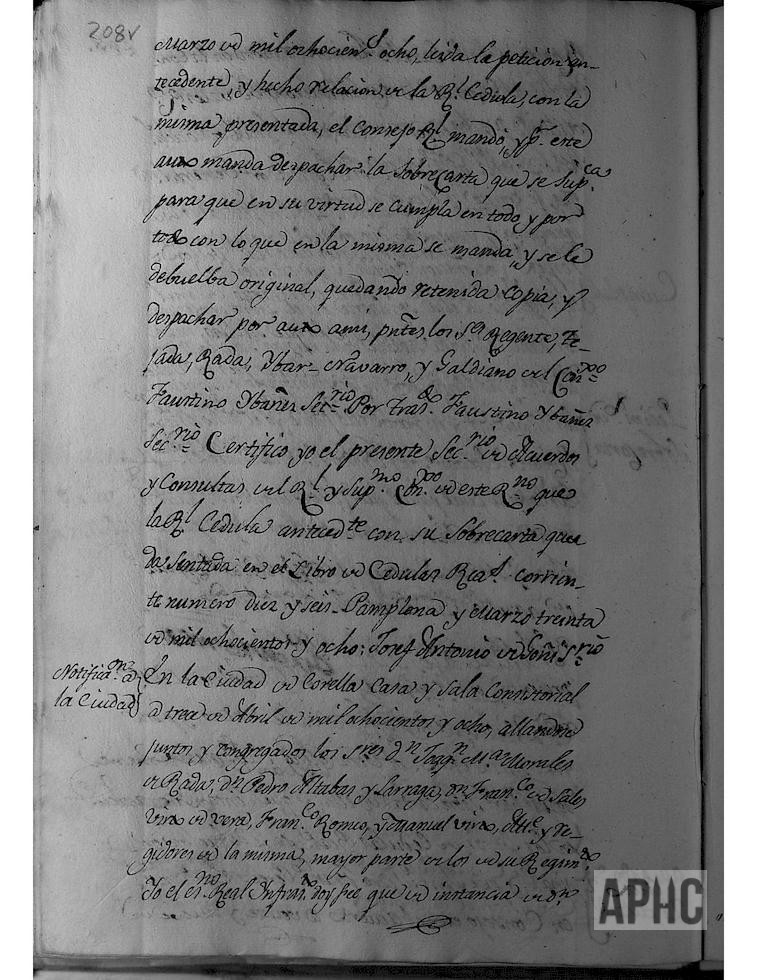 208v
Marzo de mil ochocien.s ocho, leida la peticion an-
tecedente, y hecho relacion de la R.l Cedula, con la
misma presentada, el Consejo R.l mandó, y p.r este
auto manda despachar la Sobrecarta que se Sup.ca
para que en su virtud se cumpla en todo y por
todo con lo que en la misma se manda, y se le
debuelba original, quedando retenida Copia, y
despachar por auto ami, pntes. los S.s Regente, Te-
jada, Rada, Ybar- Navarro, y Galdiano del Con.xo
Faustino Ybañez Sec.rio Por Tras.do Faustino Ybañez
Sec.rio Certifico yo el presente Sec.rio de Acuerdos
y Consultas del R.l y Sup.mo Con.xo de este R.no que
la R.l Cedula anteced.te con su Sobrecarta que-
da sentada en el Libro de Cedulas Rea.s corrien-
te numero diez y seis. Pamplona y Marzo treinta
de mil ochocientos y ocho: Josef Antonio de Goñi S.rio
Notifica.on a
la Ciudad
En la Ciudad de Corella Casa y Sala Consistorial
a trece de Abril de mil ochocientos y ocho, allandose
juntos y congregados los S.res d.n Joaq.n M.a Morales
de Rada, d.n Pedro Altabas y Larraga, d.n Fran.co de Sales
Vira de vera, Fran.co Romeo, y Manuel Vira, Alc.e y re-
gidores de la misma, mayor parte de los de su Regim.to
Yo el es.no Real Ynfras.to doy fee que de instancia de d.n
APHC